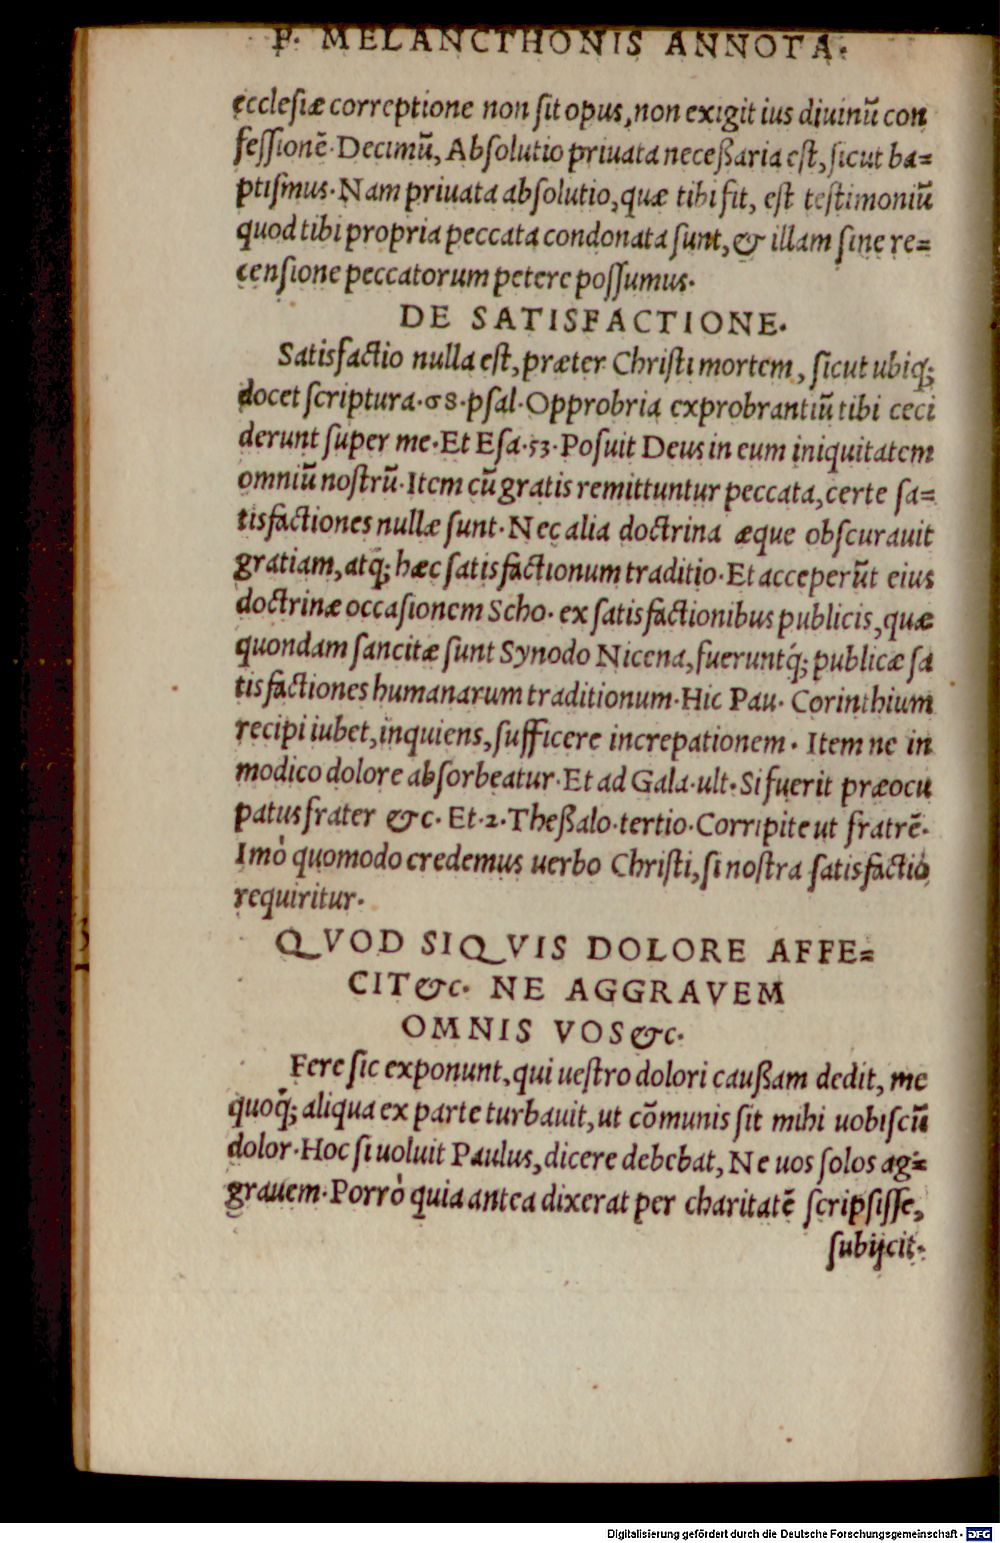 P. MELANCTHONIS ANNOTA.
ecclesiæ correptione non sit opus, non exigit ius diuinũ con
fessionẽ. Decimũ, Absolutio priuata neceßaria est, sicut ba=
ptismus. Nam priuata absolutio, quæ tibi fit, est testimoniũ
quod tibi propria peccata condonata sunt, & illam sine re=
censione peccatorum petere possumus.
DE SATISFACTIONE.
Satisfactio nulla est, præter Christi mortem, sicut ubiq;
docet scriptura. 68. psal. Opprobria exprobrantiũ tibi ceci
derunt super me. Et Esa. 53. Posuit Deus in eum iniquitatem
omniũ nostrũ. Item cũ gratis remittuntur peccata, certe sa=
tisfactiones nullæ sunt. Nec alia doctrina æque obscurauit
gratiam, atq; hæc satisfactionum traditio. Et acceperũt eius
doctrinæ occasionem Scho. ex satisfactionibus publicis, quæ
quondam sancitæ sunt Synodo Nicena, fueruntq́; publicæ sa
tisfactiones humanarum traditionum. Hic Pau. Corinthium
recipi iubet, inquiens, sufficere increpationem. Item ne in
modico dolore absorbeatur. Et ad Gala. ult. Si fuerit præocu
patus frater &c. Et. 2. Theßalo. tertio. Corripite ut fratrẽ.
Imò quomodo credemus uerbo Christi, si nostra satisfactio
requiritur.
QVOD SIQVIS DOLORE AFFE=
CIT &c. NE AGGRAVEM
OMNIS VOS &c.
Fere sic exponunt, qui uestro dolori caußam dedit, me
quoq; aliqua ex parte turbauit, ut cõmunis sit mihi uobiscũ
dolor. Hoc si uoluit Paulus, dicere debebat, Ne uos solos ag=
grauem. Porrò quia antea dixerat per charitatẽ scripsisse,
subijcit.
Digitalisierung gefördert durch die Deutsche Forschungsgemeinschaft - DFG